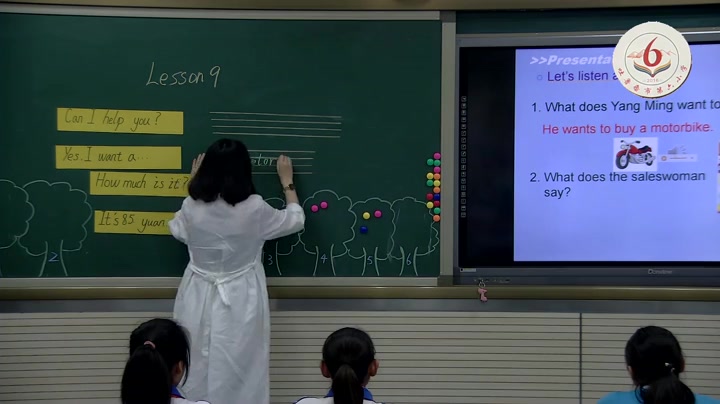 Lesson 9
Can I help you?
Yes. I want a...
How much is it?
It's 85 yuan.
2
3
4
5
6
>>Presentat
Let's listen a
1. What does Yang Ming want to
He wants to buy a motorbike.
2. What does the saleswoman
say?
6